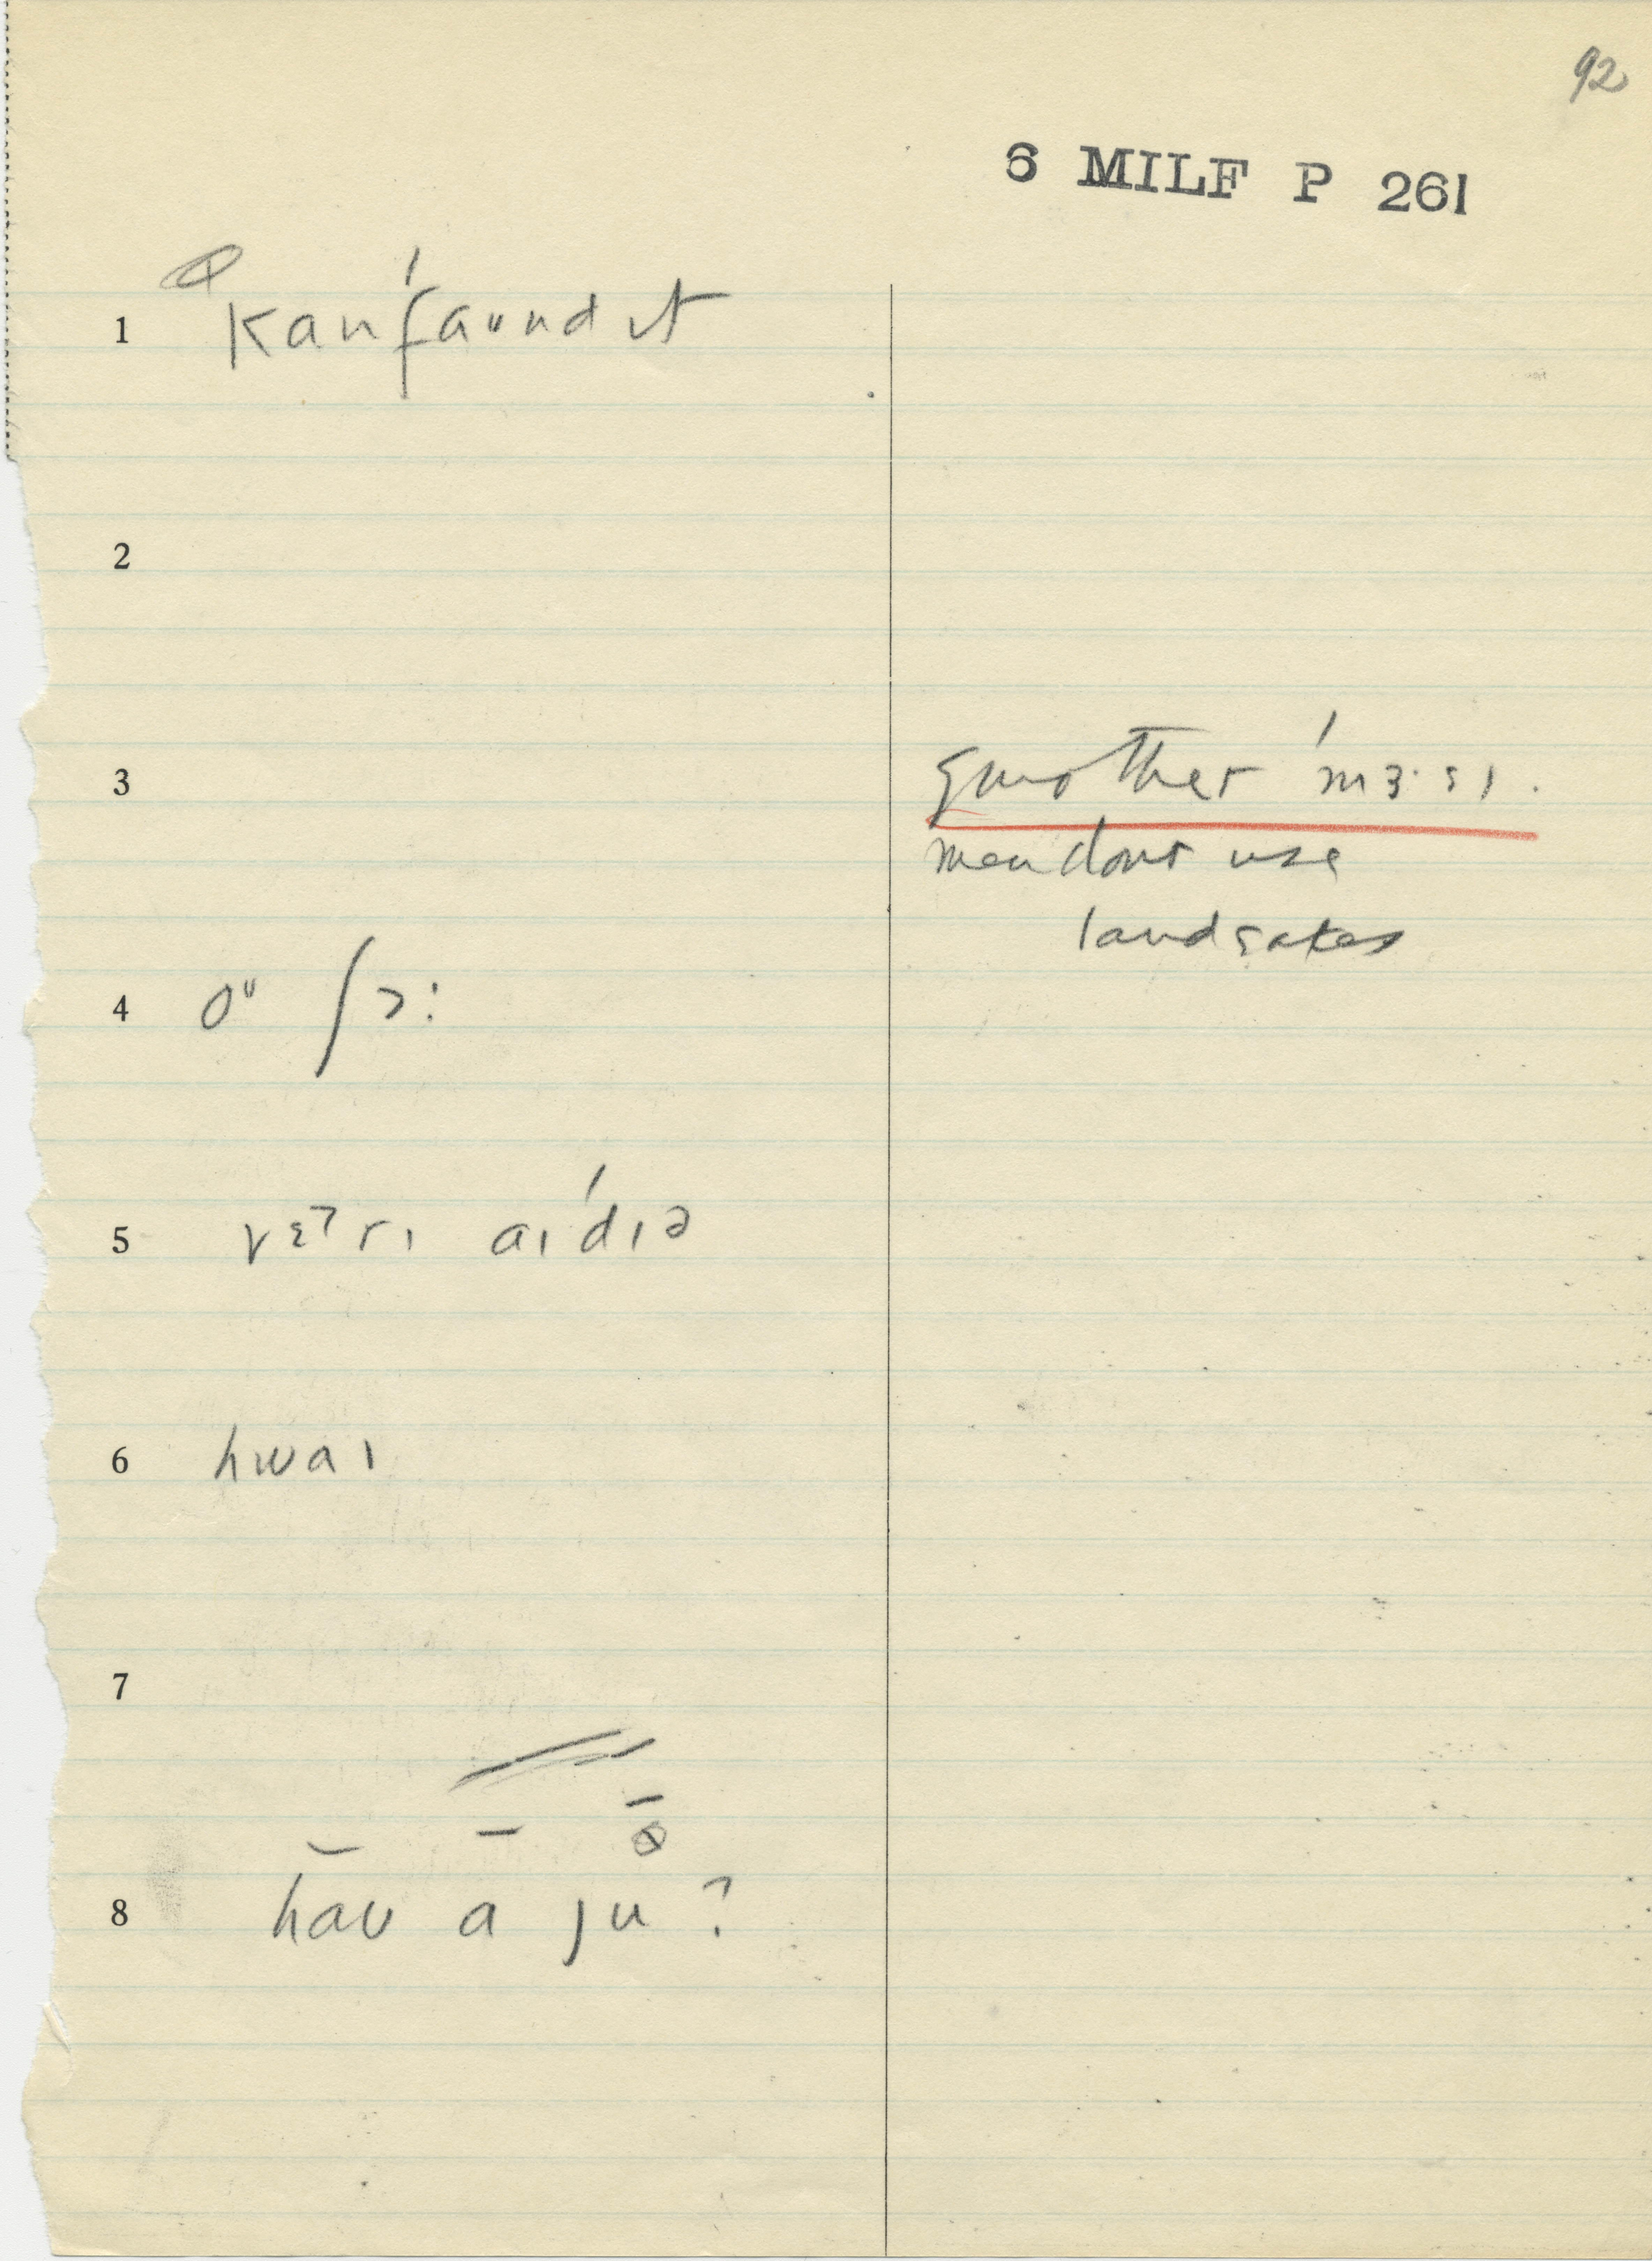 92
6 MILF P 261
1 kanˈfaᵘnd ɪt
2
3 smother ˈmɜ·sɪ.
men dont use
landsakes
4 oᵘ ʃɔ:
5 vɛᵊrɪ aɪˈdɪə
6 hwaɪ
7
8 haʊ a ju ?